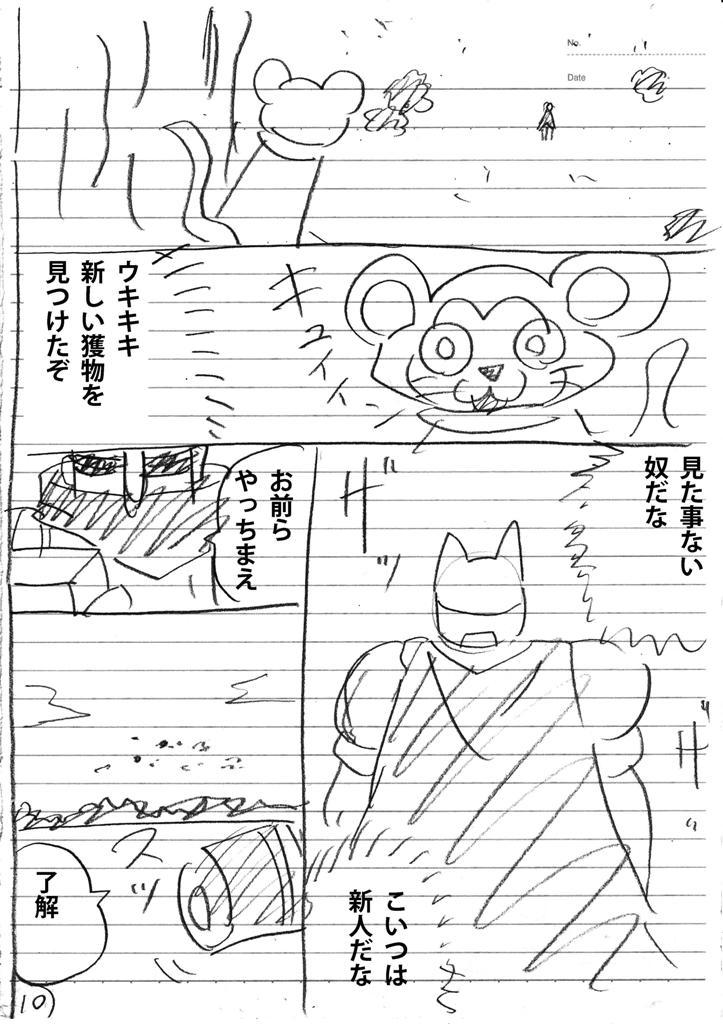 No.
Date
ウキキキ
新しい獲物を
見つけたぞ
キュイイーン
見た事ない
奴だな
ザッ
お前ら
やっちまえ
ザ
こいつは
新人だな
スッ
了解
10)